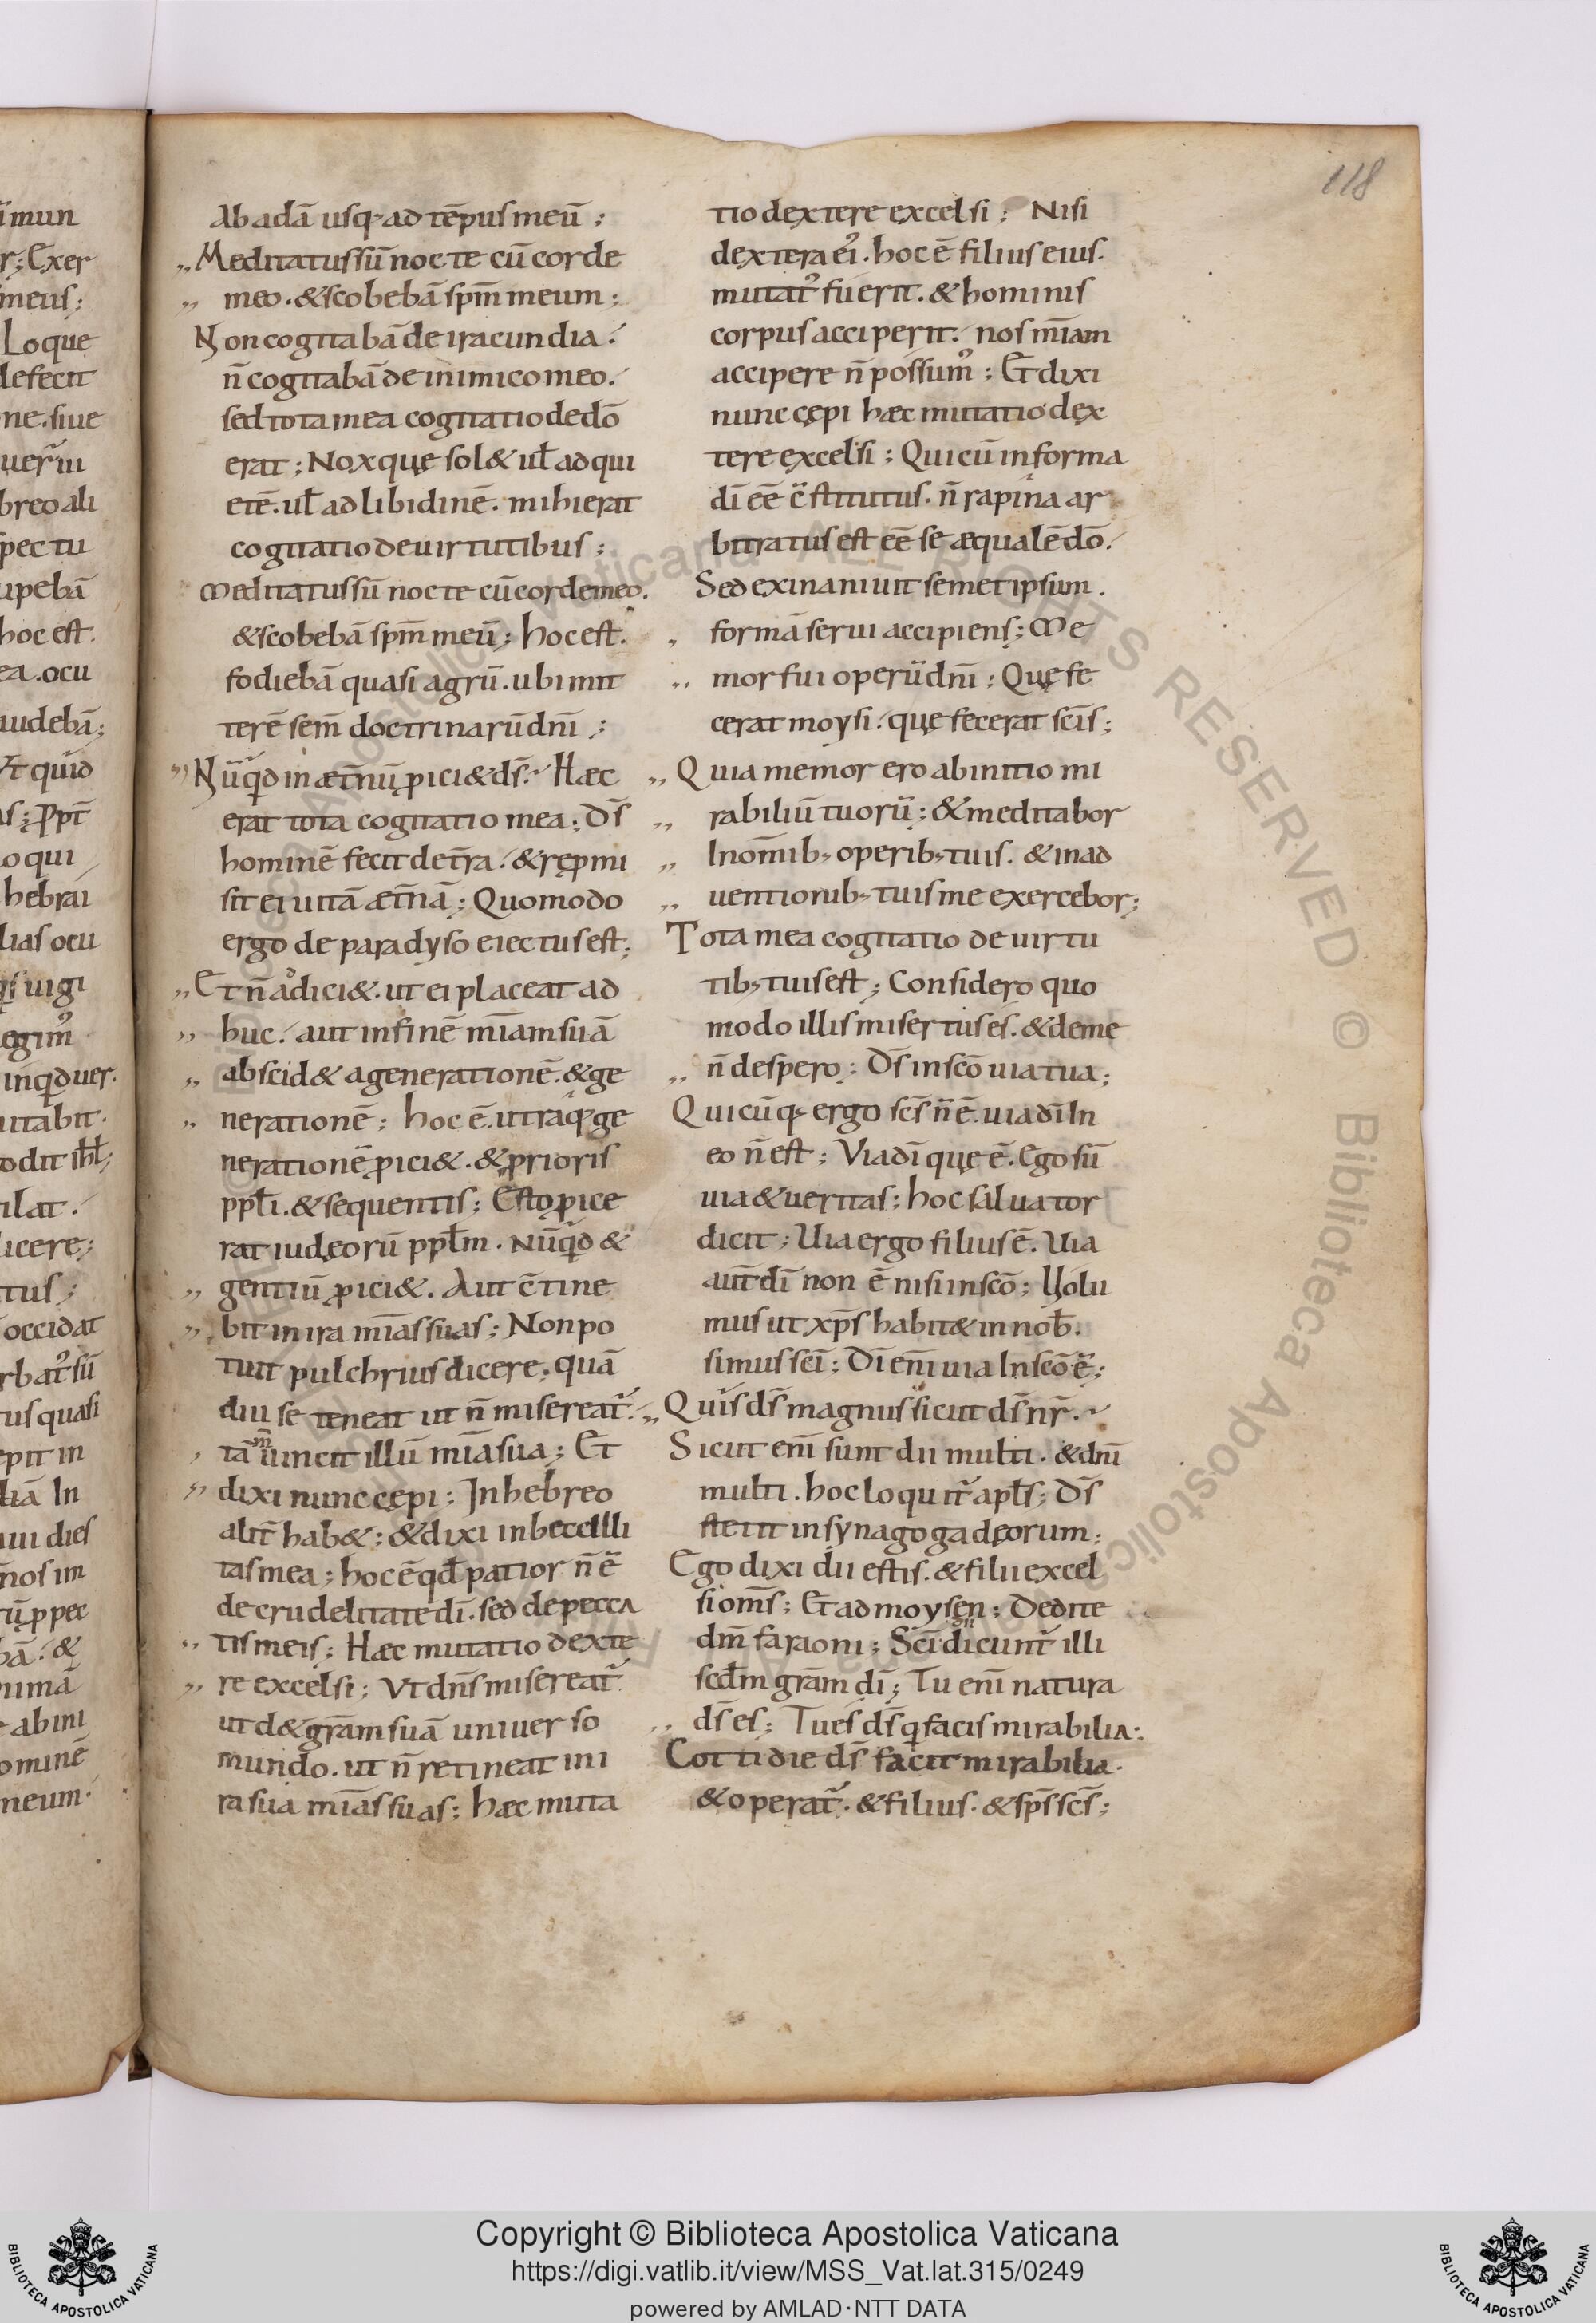 118
Ab adā usq; ad tēpus meū;
„ Meditatus sū nocte cū corde
„ meo. & scobebā sp̄m meum;
Non cogitabā de iracundia.
n̄ cogitabā de inimico meo.
sed tota mea cogitatio de dō
erat; Nox quę sol& ul̄ ad qui
etē. ul̄ ad libidinē. mihi erat
cogitatio de uirtutibus;
Meditatus sū nocte cū corde meo.
& scobebā sp̄m meū; hoc est.
fodiebā quasi agrū. ubi mit
terē sem̄ doctrinarū dn̄i;
„ Nūqd in æt̄nū ꝓici& ds̄. Hæc
erat tota cogitatio mea; Ds̄
hominē fecit de t̄ra. & rep̱mi
sit ei uitā æt̄nā; Quomodo
ergo de paradyso eiectus est;
„ Et n̄ adici&. ut ei placeat ad
„ huc. aut in finē m̄iam suā
„ abscid& a generationē. & ge
„ nerationē; hoc ē. utrāq; ge
nerationē ꝓici&. & prioris
ppl̄i. & sequentis; Esto ꝓice
rat iudęorū ppl̄m. Nūqd &
„ gentiū ꝓici&. Aut c̄tine
„ bit in ira m̄ias suas; Non po
tuit pulchrius dicere, quā
diu se teneat ut n̄ misereat᷑.
, tā m̄ uincit illū m̄ia sua; Et
„ dixi nunc cępi; In hebreo
alit̄ hab&; & dixi inbecilli
tas mea; hoc ē qđ patior n̄ ē
de crudelitate dī. sed de pecca
„ tis meis; Hæc mutatio dexte
„ re excelsi; Vt dn̄s misereat᷑
ut d& grām suā uniuerso
mundo. ut n̄ retineat in i
ra sua m̄ias suas; hæc muta
tio dextere excelsi; Nisi
dextera ei᷒. hoc ē filius eius.
mutat᷒ fuerit. & hominis
corpus acciperit. nos m̄iam
accipere n̄ possum᷒; Et dixi
nunc cępi hæc mutatio dex
tere excelsi; Qui cū in forma
dī eē c̄stitutus. n̄ rapina ar
bitratus est eē se æqualē dō.
Sed exinaniuit semetipsum.
„ formā serui accipiens; Me
„ mor fui operū dn̄i; Quę fe
cerat moysi. quę fecerat sc̄is;
„ Quia memor ero ab initio mi
„ rabiliū tuorū; & meditabor
„ In om̄ib; operib; tuis. & in ad
„ uentionib; tuis me exercebor;
Tota mea cogitatio de uirtu
tib; tuis est; Considero quo
modo illis misertus es. & de me
„ n̄ despero; Ds̄ in sc̄o uia tua;
Quicūq; ergo sc̄s n̄ ē. uia dī In
eo n̄ est; Via dī quę ē. Ego sū
uia & ueritas; hoc saluator
dicit; Uia ergo filius ē. Uia
aut̄ dī non ē nisi in sc̄o; Uolu
mus ut xp̄s habit& in nob̄.
simus sc̄i; Dī eni᷒ uia In sc̄o ē;
„ Quis ds̄ magnus sicut ds̄ nr̄.
Sicut enī sunt dii multi. & dn̄i
multi. hoc loquit᷑ apl̄s; Ds̄
stetit in synagoga deorum;
Ego dixi dii estis. & filii excel
si om̄s; Et ad moysen; Dedi te
dm̄ faraoni; Sc̄i dii dicunt᷑ illi
scđm grām dī; Tu enī natura
„ ds̄ es; Tu es ds̄ q facis mirabilia;
Cottidie ds̄ facit mirabilia.
& operat᷑. & filius. & sp̄s sc̄s;
Copyright © Biblioteca Apostolica Vaticana
https://digi.vatlib.it/view/MSS_Vat.lat.315/0249
powered by AMLAD·NTT DATA